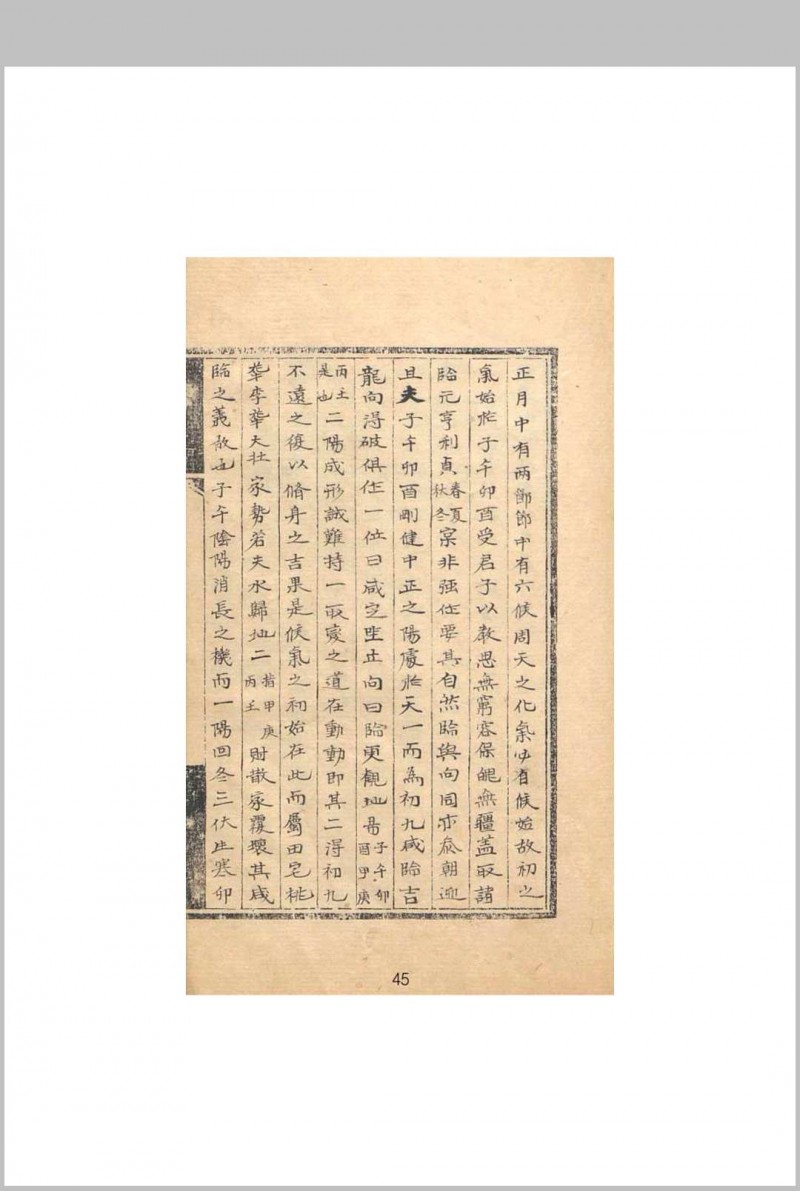 正月中有两節節中有六候周天之化氣必有候始故初之
氣始於子午卯酉受君子以教思無窮容保毗無疆蓋取諸
臨元亨利貞春夏秋冬寀非强作要其自然臨與向同亦叅朝迎
且夫子午卯酉剛健中正之陽處於天一而為初九咸臨吉
龍向得破俱作一位曰咸定坐止向曰臨更觀地昜子午卯酉甲庚
丙壬是也二陽成形誠難持一取变之道在動動即其二得初九
不遠之復以脩身之吉果是候氣之初始在此而屬田宅桃
華李華夫壯家勢若夫水歸地二指甲庚丙壬財散家覆壞其咸
臨之義故也子午陰陽消長之機而一陽回冬三伏生寒卯
45